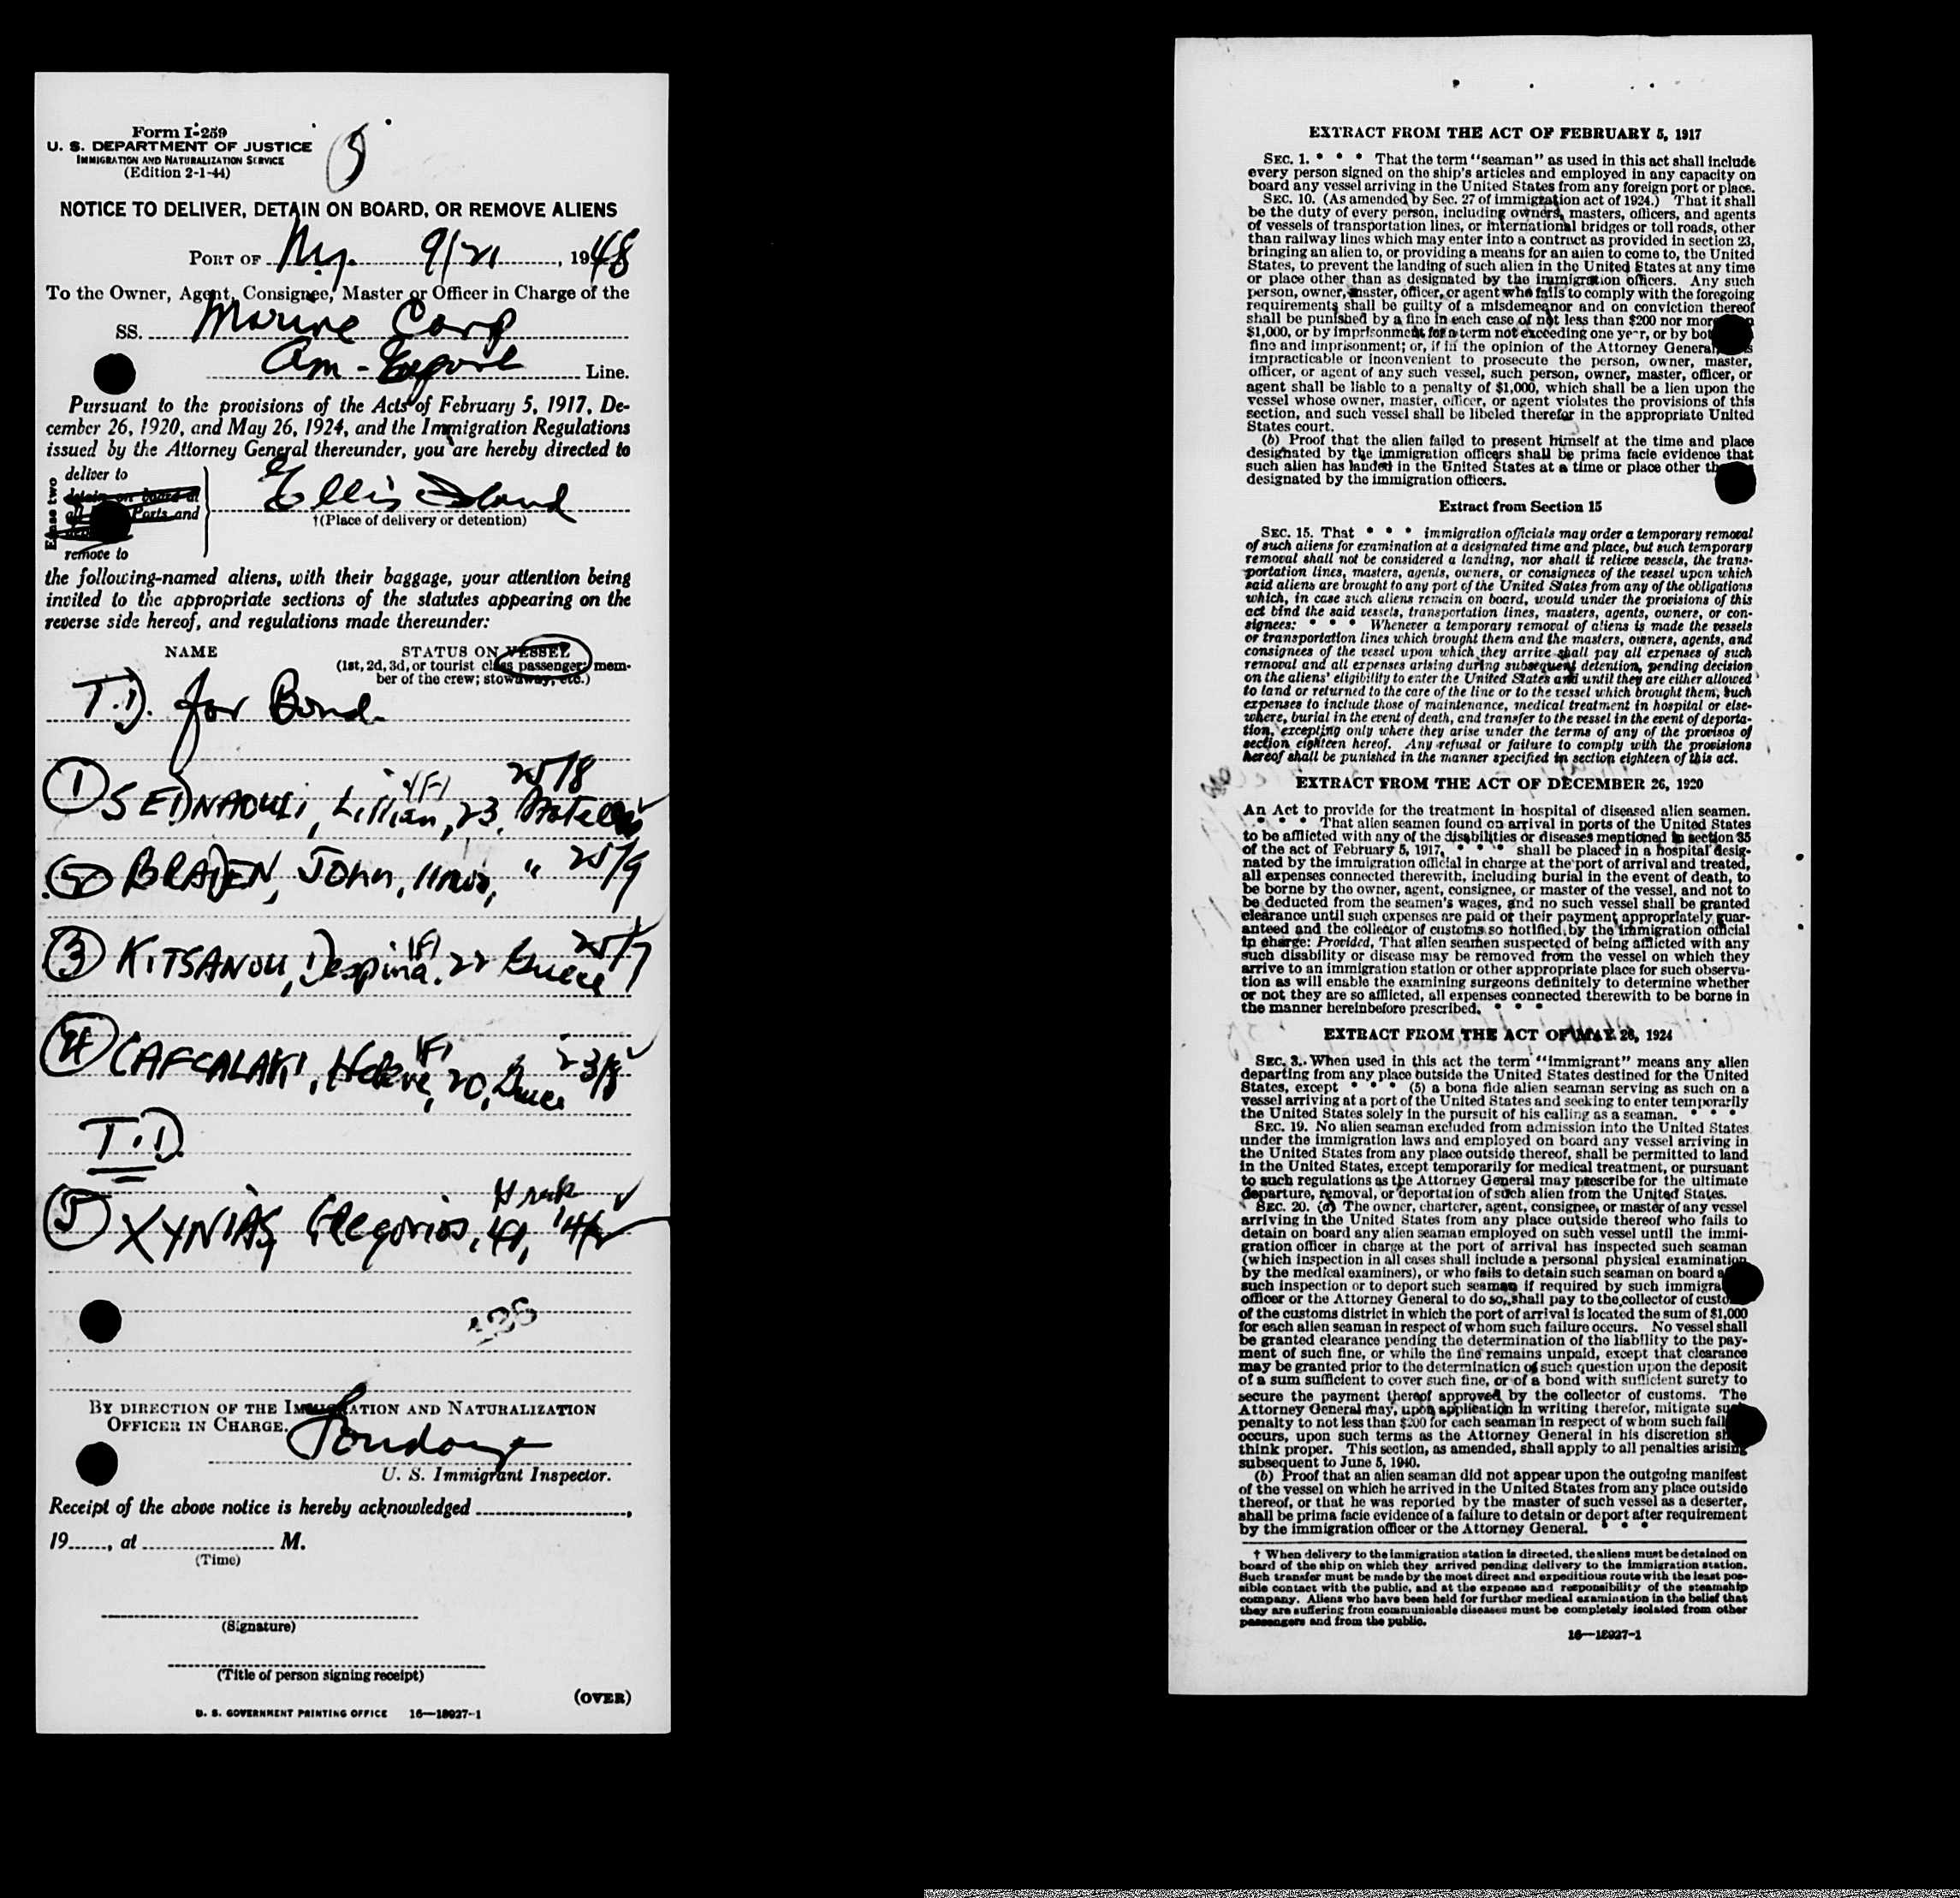 Form I-259
U. S. DEPARTMENT OF JUSTICE
IMMIGRATION AND NATURALIZATION SERVICE
(Edition 2-1-44)
NOTICE TO DELIVER, DETAIN ON BOARD, OR REMOVE ALIENS
PORT OF N.Y. 9/21, 1948
To the Owner, Agent, Consignee, Master or Officer in Charge of the
SS. Marine Carp
Am-Export Line.
Pursuant to the provisions of the Acts of February 5, 1917, De-
cember 26, 1920, and May 26, 1924, and the Immigration Regulations
issued by the Attorney General thereunder, you are hereby directed to
deliver to
detain on board at
all Ports and
remove to
Ellis Island
†(Place of delivery or detention)
the following-named aliens, with their baggage, your attention being
invited to the appropriate sections of the statutes appearing on the
reverse side hereof, and regulations made thereunder:
NAME STATUS ON VESSEL
(1st, 2d, 3d, or tourist class passenger; mem-
ber of the crew; stowaway, etc.)
T.D. for Bond
25/8
1 SEDNAOUI, Lillian, 23,
BRADEN, John, 11mos, " 25/9
3 KITSANOU, Despina, 22 Greece 25/7
4 CAFCALAKI, Helene, 20, Greece 23/8
T.D
5 XYNIAS, Gregorios, 41, Greek
BY DIRECTION OF THE IMMIGRATION AND NATURALIZATION
OFFICER IN CHARGE.
U. S. Immigrant Inspector.
Receipt of the above notice is hereby acknowledged
19......, at ...................... M.
(Time)
(Signature)
(Title of person signing receipt)
(OVER)
U. S. GOVERNMENT PRINTING OFFICE 16—18927-1
EXTRACT FROM THE ACT OF FEBRUARY 5, 1917
SEC. 1. * * * That the term "seaman" as used in this act shall include
every person signed on the ship's articles and employed in any capacity on
board any vessel arriving in the United States from any foreign port or place.
SEC. 10. (As amended by Sec. 27 of immigration act of 1924.) That it shall
be the duty of every person, including owners, masters, officers, and agents
of vessels of transportation lines, or international bridges or toll roads, other
than railway lines which may enter into a contract as provided in section 23,
bringing an alien to, or providing a means for an alien to come to, the United
States, to prevent the landing of such alien in the United States at any time
or place other than as designated by the immigration officers. Any such
person, owner, master, officer, or agent who fails to comply with the foregoing
requirements shall be guilty of a misdemeanor and on conviction thereof
shall be punished by a fine in each case of not less than $200 nor more
$1,000, or by imprisonment for a term not exceeding one year, or by both
fine and imprisonment; or, if in the opinion of the Attorney General,
impracticable or inconvenient to prosecute the person, owner, master,
officer, or agent of any such vessel, such person, owner, master, officer, or
agent shall be liable to a penalty of $1,000, which shall be a lien upon the
vessel whose owner, master, officer, or agent violates the provisions of this
section, and such vessel shall be libeled therefor in the appropriate United
States court.
(b) Proof that the alien failed to present himself at the time and place
designated by the immigration officers shall be prima facie evidence that
such alien has landed in the United States at a time or place other
designated by the immigration officers.
Extract from Section 15
SEC. 15. That * * * immigration officials may order a temporary removal
of such aliens for examination at a designated time and place, but such temporary
removal shall not be considered a landing, nor shall it relieve vessels, the trans-
portation lines, masters, agents, owners, or consignees of the vessel upon which
said aliens are brought to any port of the United States from any of the obligations
which, in case such aliens remain on board, would under the provisions of this
act bind the said vessels, transportation lines, masters, agents, owners, or con-
signees: * * * Whenever a temporary removal of aliens is made the vessels
or transportation lines which brought them and the masters, owners, agents, and
consignees of the vessel upon which they arrive shall pay all expenses of such
removal and all expenses arising during subsequent detention, pending decision
on the aliens' eligibility to enter the United States and until they are either allowed
to land or returned to the care of the line or to the vessel which brought them, such
expenses to include those of maintenance, medical treatment in hospital or else-
where, burial in the event of death, and transfer to the vessel in the event of deporta-
tion, excepting only where they arise under the terms of any of the provisos of
section eighteen hereof. Any refusal or failure to comply with the provisions
hereof shall be punished in the manner specified in section eighteen of this act.
EXTRACT FROM THE ACT OF DECEMBER 26, 1920
An Act to provide for the treatment in hospital of diseased alien seamen.
* * * That alien seamen found on arrival in ports of the United States
to be afflicted with any of the disabilities or diseases mentioned in section 35
of the act of February 5, 1917, * * * shall be placed in a hospital desig-
nated by the immigration official in charge at the port of arrival and treated,
all expenses connected therewith, including burial in the event of death, to
be borne by the owner, agent, consignee, or master of the vessel, and not to
be deducted from the seamen's wages, and no such vessel shall be granted
clearance until such expenses are paid or their payment appropriately guar-
anteed and the collector of customs so notified by the immigration official
in charge: Provided, That alien seamen suspected of being afflicted with any
such disability or disease may be removed from the vessel on which they
arrive to an immigration station or other appropriate place for such observa-
tion as will enable the examining surgeons definitely to determine whether
or not they are so afflicted, all expenses connected therewith to be borne in
the manner hereinbefore prescribed. * * *
EXTRACT FROM THE ACT OF MAY 26, 1924
SEC. 3. When used in this act the term "immigrant" means any alien
departing from any place outside the United States destined for the United
States, except * * * (5) a bona fide alien seaman serving as such on a
vessel arriving at a port of the United States and seeking to enter temporarily
the United States solely in the pursuit of his calling as a seaman. * * *
SEC. 19. No alien seaman excluded from admission into the United States
under the immigration laws and employed on board any vessel arriving in
the United States from any place outside thereof, shall be permitted to land
in the United States, except temporarily for medical treatment, or pursuant
to such regulations as the Attorney General may prescribe for the ultimate
departure, removal, or deportation of such alien from the United States.
SEC. 20. (a) The owner, charterer, agent, consignee, or master of any vessel
arriving in the United States from any place outside thereof who fails to
detain on board any alien seaman employed on such vessel until the immi-
gration officer in charge at the port of arrival has inspected such seaman
(which inspection in all cases shall include a personal physical examination
by the medical examiners), or who fails to detain such seaman on board
such inspection or to deport such seaman if required by such
officer or the Attorney General to do so, shall pay to the collector of customs
of the customs district in which the port of arrival is located the sum of $1,000
for each alien seaman in respect of whom such failure occurs. No vessel shall
be granted clearance pending the determination of the liability to the pay-
ment of such fine, or while the fine remains unpaid, except that clearance
may be granted prior to the determination of such question upon the deposit
of a sum sufficient to cover such fine, or of a bond with sufficient surety to
secure the payment thereof approved by the collector of customs. The
Attorney General may, upon application in writing therefor, mitigate such
penalty to not less than $200 for each seaman in respect of whom such
occurs, upon such terms as the Attorney General in his discretion
think proper. This section, as amended, shall apply to all penalties arising
subsequent to June 5, 1940.
(b) Proof that an alien seaman did not appear upon the outgoing manifest
of the vessel on which he arrived in the United States from any place outside
thereof, or that he was reported by the master of such vessel as a deserter,
shall be prima facie evidence of a failure to detain or deport after requirement
by the immigration officer or the Attorney General. * * *
† When delivery to the immigration station is directed, the aliens must be detained on
board of the ship on which they arrived pending delivery to the immigration station.
Such transfer must be made by the most direct and expeditious route with the least pos-
sible contact with the public, and at the expense and responsibility of the steamship
company. Aliens who have been held for further medical examination in the belief that
they are suffering from communicable diseases must be completely isolated from other
passengers and from the public.
16—18927-1